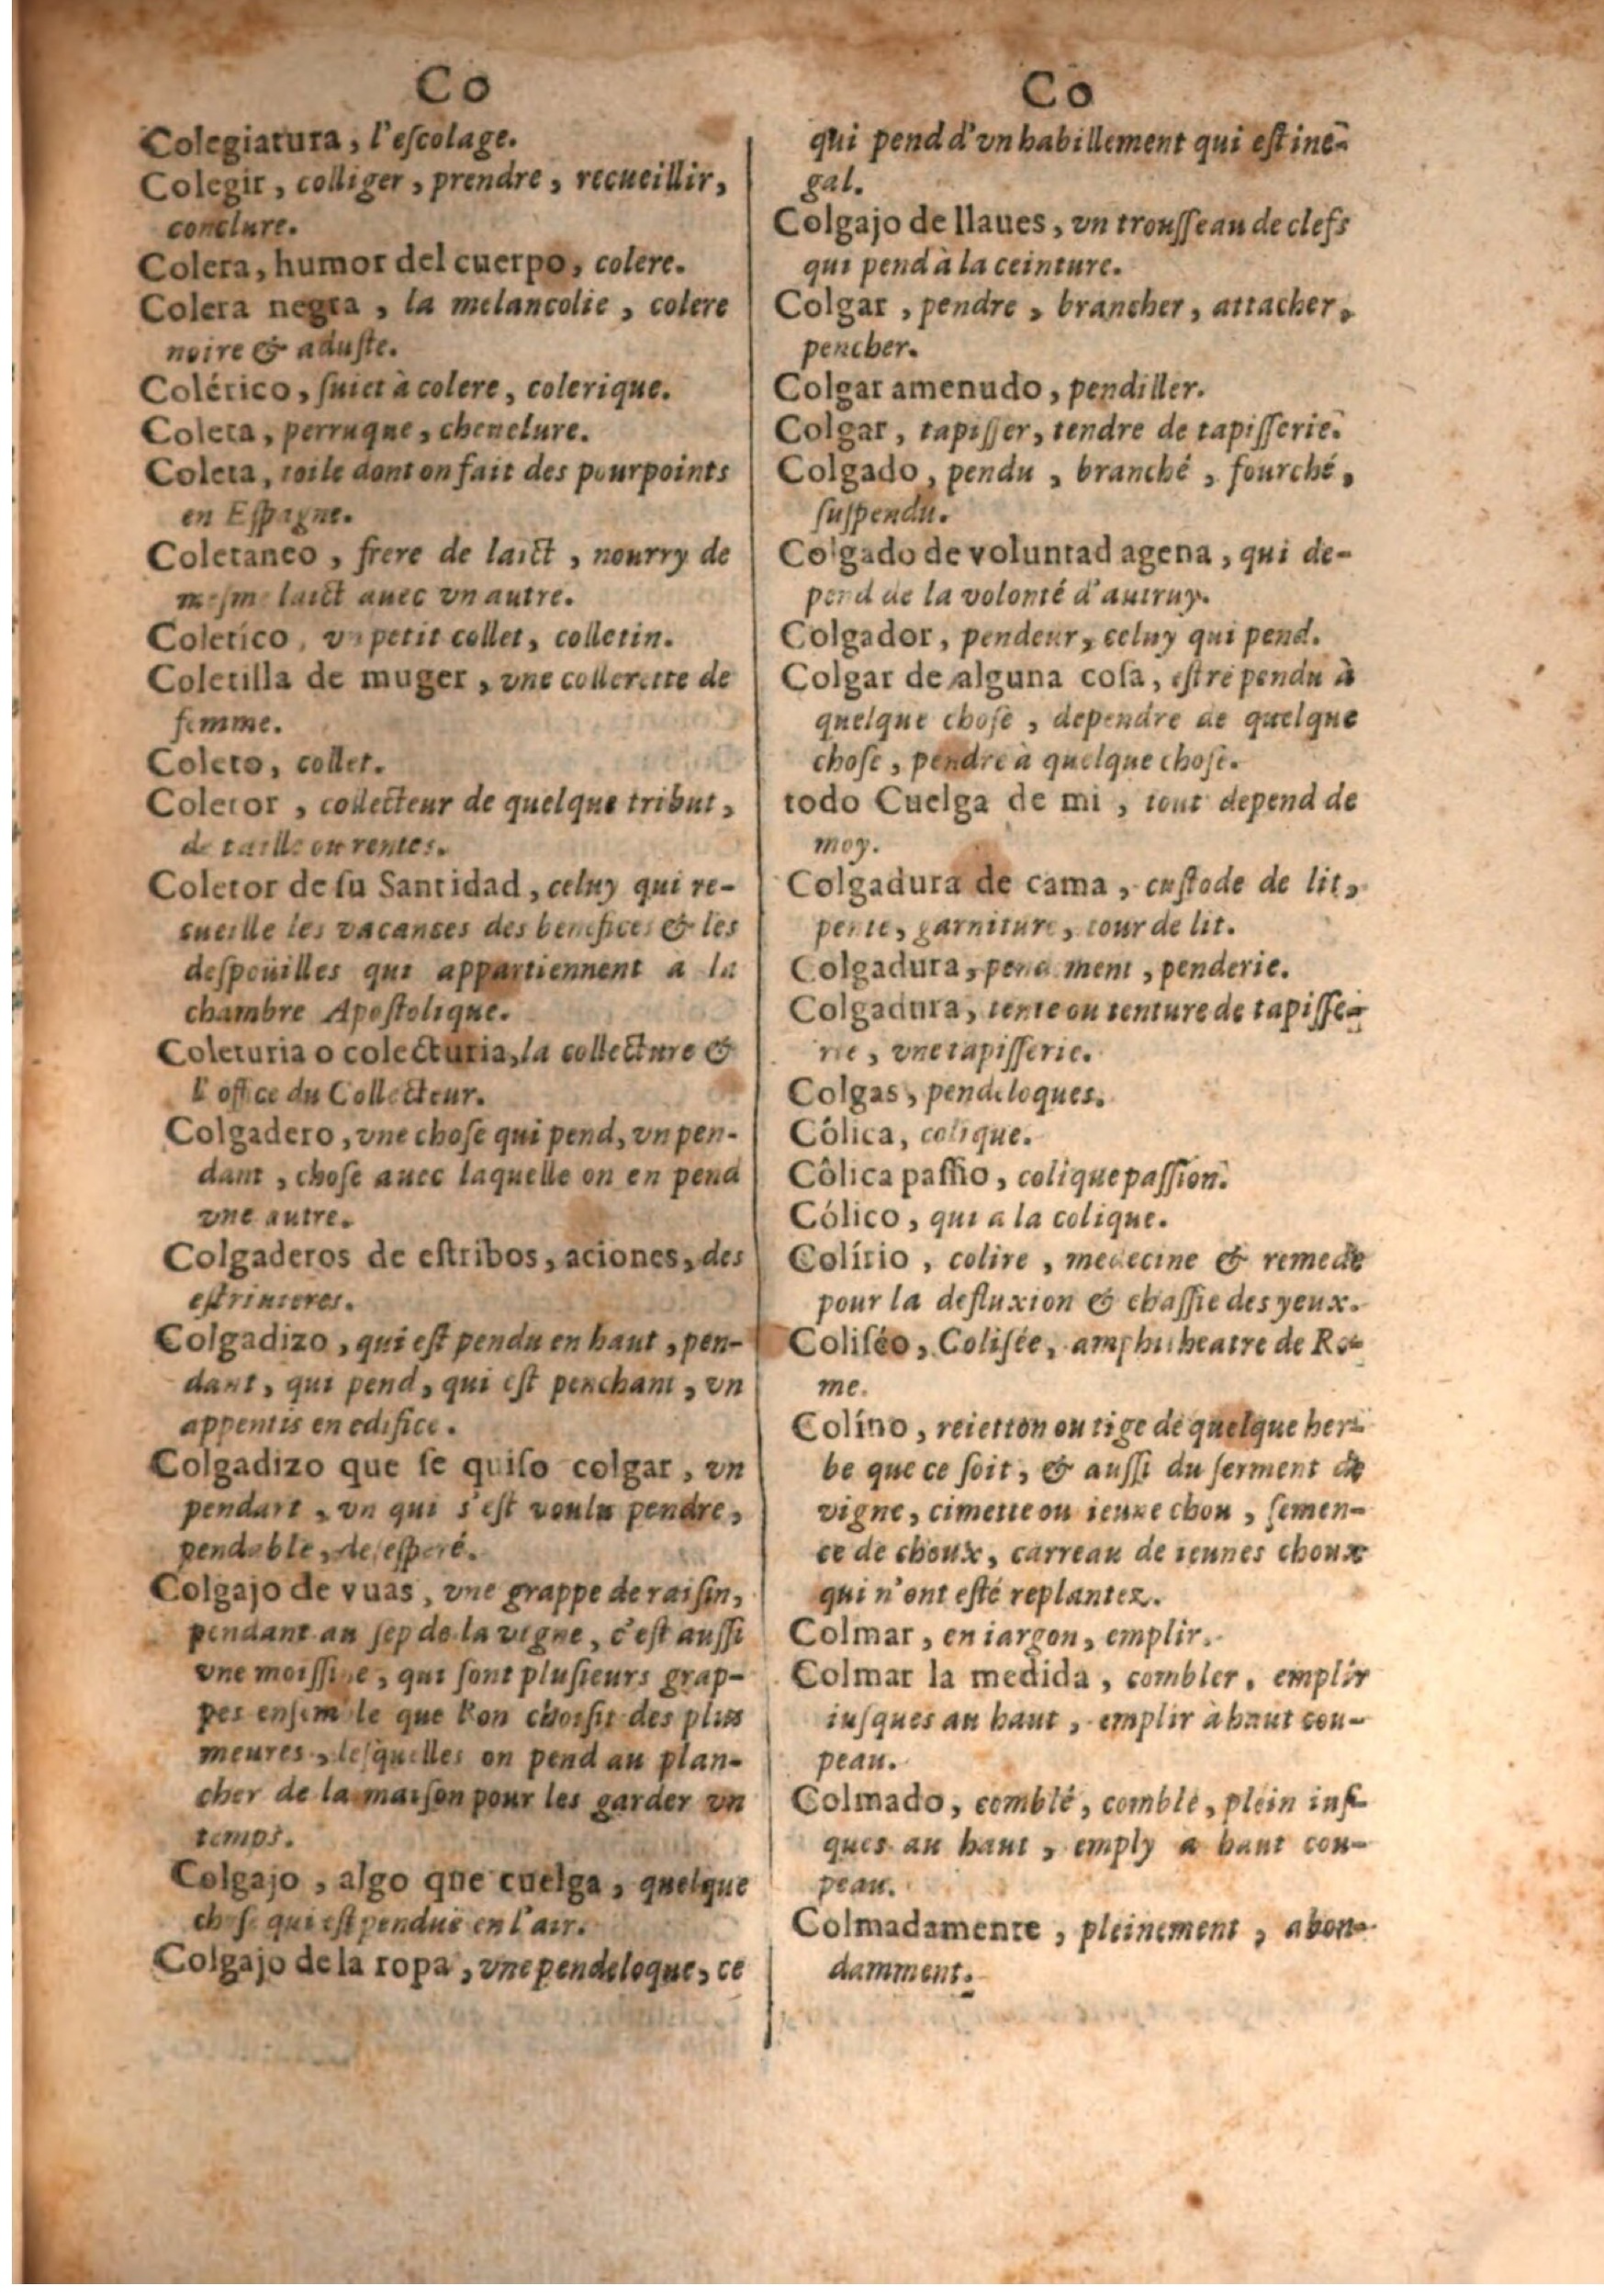 Co
Colegiatura, l'eſcolage.
Colegir, colliger, prendre, recueillir,
conclure.
Colera, humor del cuerpo, colere.
Colera negra, la melancolie, colere
noire & aduſte.
Colérico, ſuiet à colere, colerique.
Coleta, perruque, cheuelure.
Coleta, toile dont on fait des pourpoints
en Eſpagne.
Coletaneo, frere de laict, nourry de
meſme laict auec vn autre.
Coletíco, vn petit collet, colletin.
Coletilla de muger, vne collerette de
femme.
Coleto, collet.
Coletor, collecteur de quelque tribut,
de taille ou rentes.
Coletor de ſu Santidad, celuy qui re-
cueille les vacances des benefices & les
deſpoüilles qui appartiennent a la
chambre Apoſtolique.
Coleturia o colecturia, la collecture &
l'office du Collecteur.
Colgadero, vne choſe qui pend, vn pen-
dant, choſe auec laquelle on en pend
vne autre.
Colgaderos de eſtribos, aciones, des
eſtriuieres.
Colgadizo, qui eſt pendu en haut, pen-
dant, qui pend, qui eſt penchant, vn
appentis en edifice.
Colgadizo que ſe quiſo colgar, vn
pendart, vn qui s'eſt voulu pendre,
pendable, deſeſperé.
Colgajo de vuas, vne grappe de raiſin,
pendant au ſep de la vigne, c'eſt auſſi
vne moiſſine, qui ſont pluſieurs grap-
pes enſemble que l'on choiſit des plus
meures, leſquelles on pend au plan-
cher de la maiſon pour les garder vn
temps.
Colgajo, algo que cuelga, quelque
choſe qui eſt penduë en l'air.
Colgajo de la ropa, vne pendeloque, ce
Co
qui pend d'vn habillement qui eſt ine-
gal.
Colgajo de llaues, vn trouſſeau de clefs
qui pend à la ceinture.
Colgar, pendre, brancher, attacher,
pencher.
Colgar amenudo, pendiller.
Colgar, tapiſſer, tendre de tapiſſerie.
Colgado, pendu, branché, fourché,
ſuſpendu.
Colgado de voluntad agena, qui de-
pend de la volonté d'autruy.
Colgador, pendeur, celuy qui pend.
Colgar de alguna coſa, eſtre pendu à
quelque choſe, dependre de quelque
choſe, pendre à quelque choſe.
todo Cuelga de mi, tout depend de
moy.
Colgadura de cama, cuſtode de lit,
pente, garniture, tour de lit.
Colgadura, pendement, penderie.
Colgadura, tente ou tenture de tapiſſe-
rie, vne tapiſſerie.
Colgas, pendeloques.
Cólica, colique.
Côlica paſſio, colique paſſion.
Cólico, qui a la colique.
Colírio, colire, medecine & remede
pour la defluxion & chaſſie des yeux.
Coliſéo, Coliſée, amphitheatre de Ro-
me.
Colíno, reietton ou tige de quelque her-
be que ce ſoit, & auſſi du ſerment de
vigne, cimette ou ieune chou, ſemen-
ce de choux, carreau de ieunes choux
qui n'ont eſté replantez.
Colmar, en iargon, emplir.
Colmar la medida, combler, emplir
iuſques au haut, emplir à haut cou-
peau.
Colmado, comblé, comble, plein iuſ-
ques au haut, emply a haut cou-
peau.
Colmadamente, pleinement, abon-
damment.